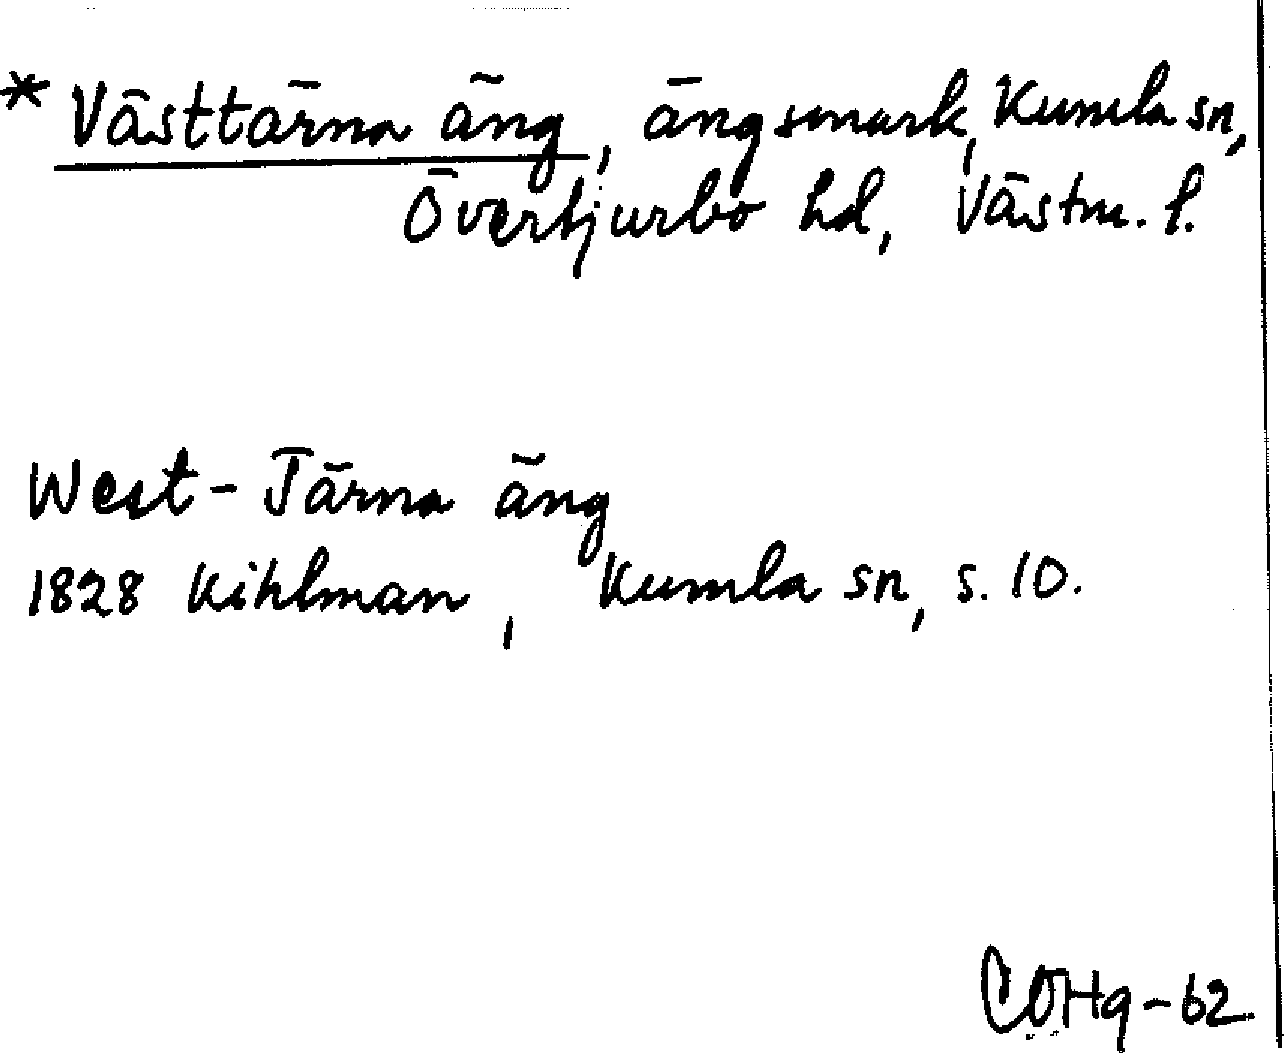 * Västtärna äng, ängsmark, Kumla sn,
Övertjurbo hd, Västm. l.
West-Tärna äng
1828 Kihlman, Kumla sn, s. 10.
COHg-62